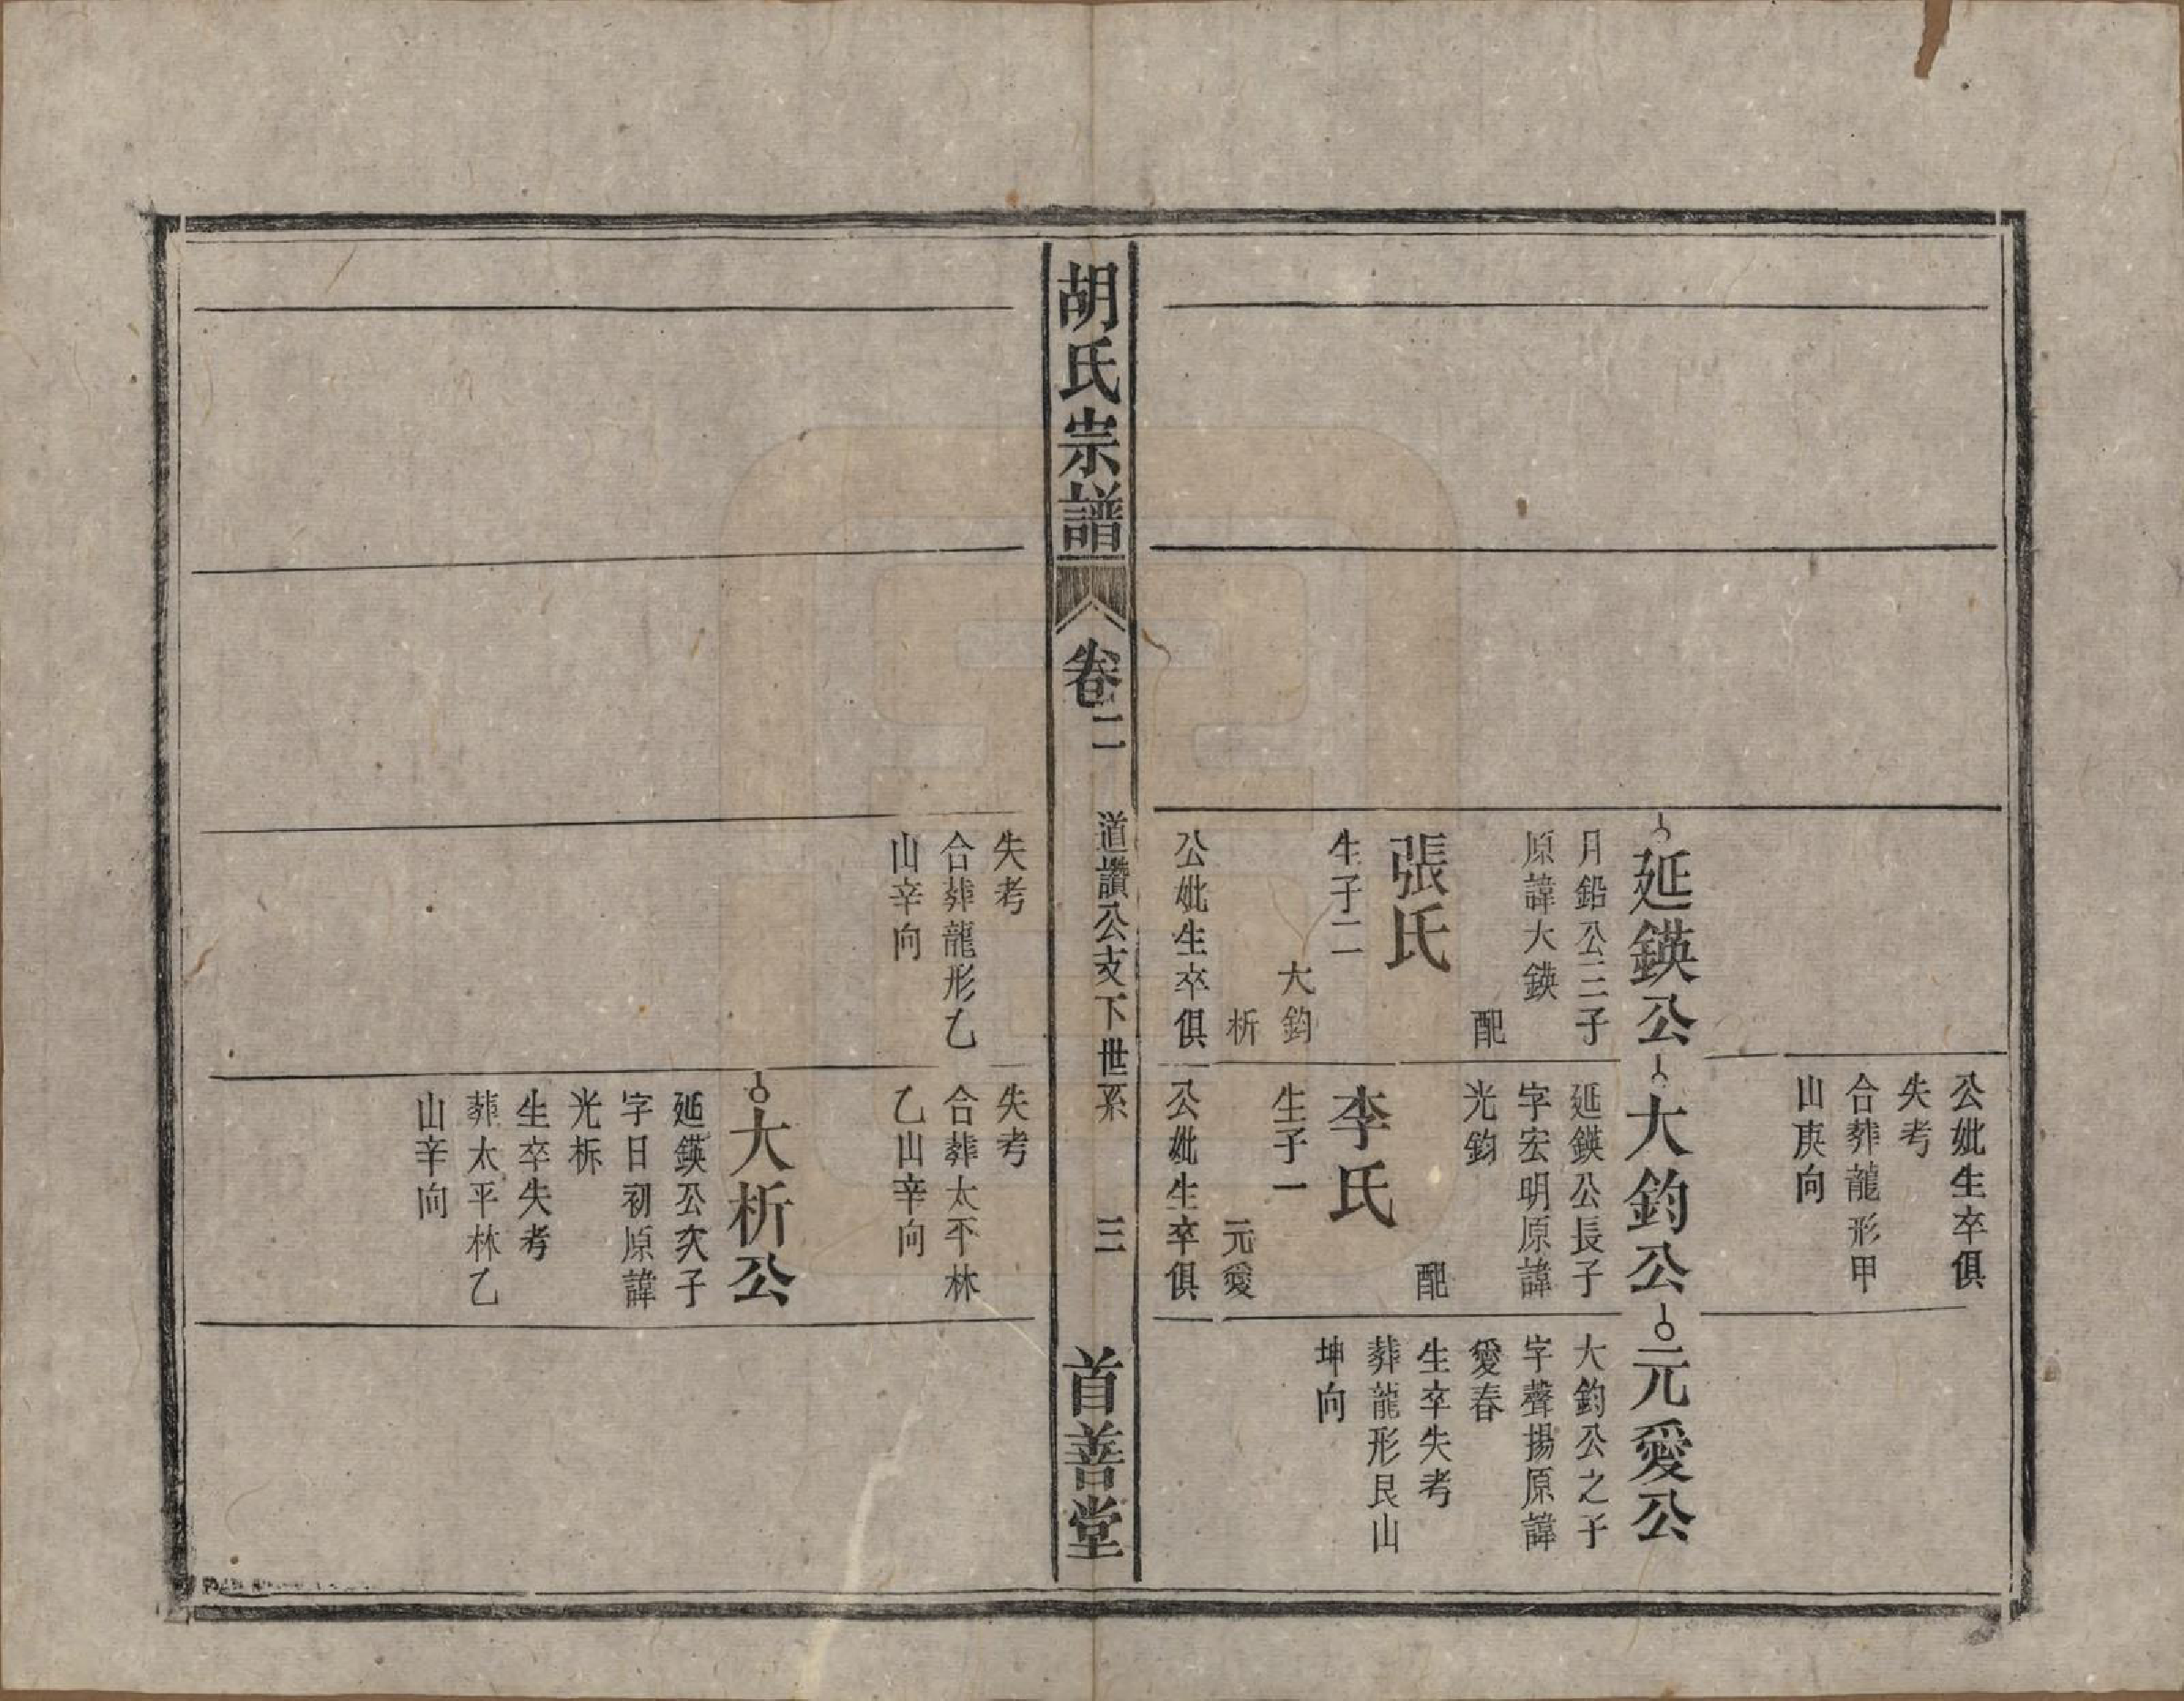 公妣生卒俱
失考
合葬龍形甲
山庚向
延鍈公
月鉛公三子
原諱大鍈
配
張氏
生子二
大鈞
析
公妣生卒俱
大鈞公
延鍈公長子
字宏明原諱
光鈞
配
李氏
生子一
元愛
公妣生卒俱
元愛公
大鈞公之子
字聲揚原諱
愛春
生卒失考
葬龍形艮山
坤向
胡氏宗譜
卷二
道讚公支下世系
三
首善堂
失考
合葬龍形乙
山辛向
失考
合葬太平林
乙山辛向
大析公
延鍈公次子
字日初原諱
光析
生卒失考
葬太平林乙
山辛向